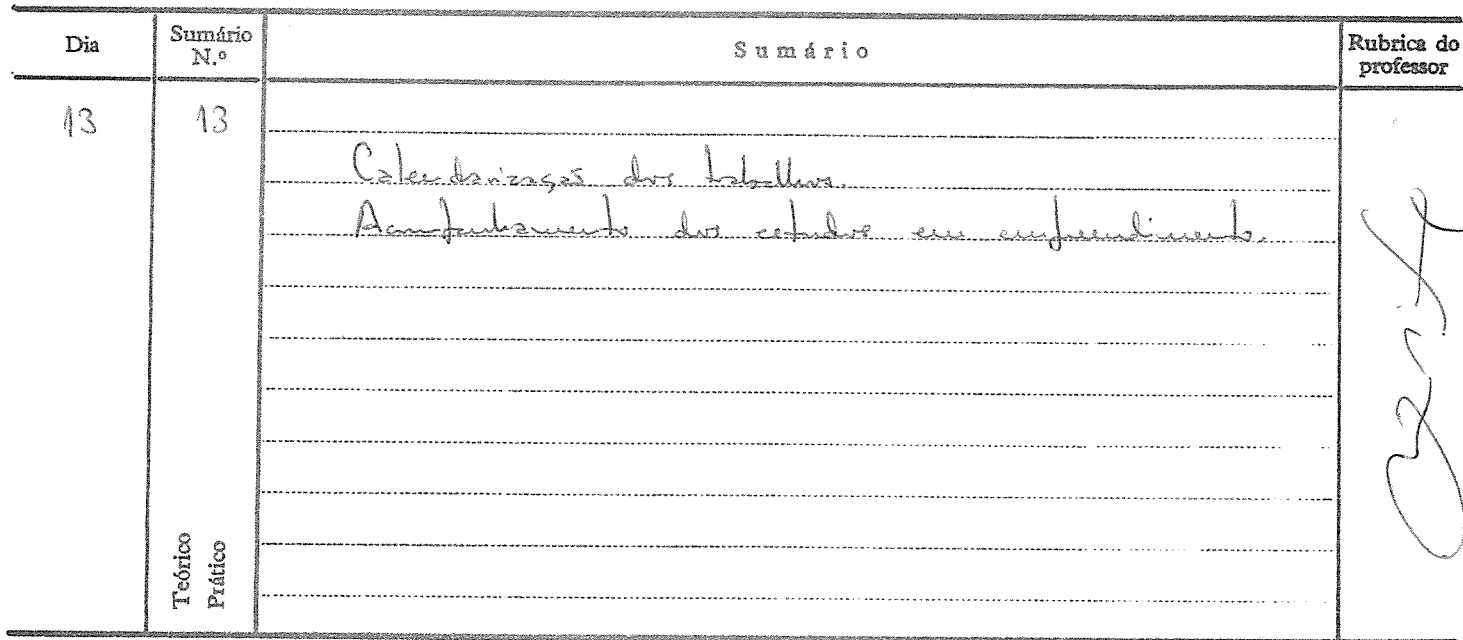 Dia
Sumário N.º
Sumário
Rubrica do professor
13
13
Calendarização dos trabalhos.
Acompanhamento dos estudos em empreendimento.
Teórico
Prático